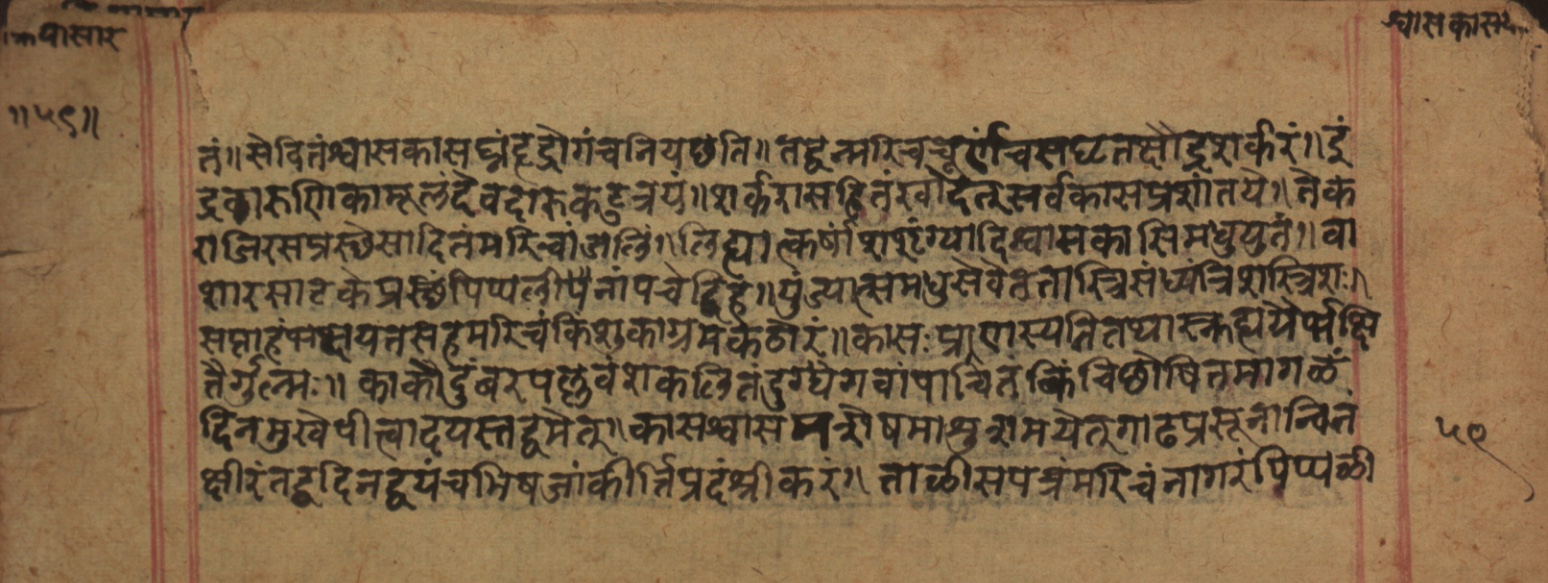 पासार
श्वासकास
॥५९॥
तं॥ सेवितंश्वासकासघ्नंहृद्रोगंचनियछति॥ तद्वन्मरिचचूर्णंचसघृतक्षौद्रशर्करं॥ इं
द्रवारुणिकामूलंदेवदारुकटुत्रयं॥ शर्करासहितंखादेत्सर्वकासप्रशांतये॥ नैक
राजिरसप्रस्छेसादितंमरिचांजलिं॥ लिह्यात्कर्षांशशृंग्यादिश्वासकासिमधुयुतं॥ वा
शारसाढकेप्रस्छंपिप्पलीपैनांपचेद्विह॥ युंज्यात्समधुसेवेत
सप्ताहं सहमरिचंकिंशुकाग्रमकठोरं॥ कासःप्राणास्यति
तैर्गुल्मः॥ काकोदुंबरपल्लवंशकलितंदुग्धेगवांपाचितंकिंचिछोषितमागळं
दिनमुखेपीत्वादयस्तद्वमेत्॥ कासश्वास शोषमाशुशमयेत्गाढप्रसूनान्वितं
क्षीरंतद्वदिनद्वयंचभिषजांकीर्तिप्रदंश्रीकरं॥ ताळीसपत्रंमरिचंनागरंपिप्पळी
५९